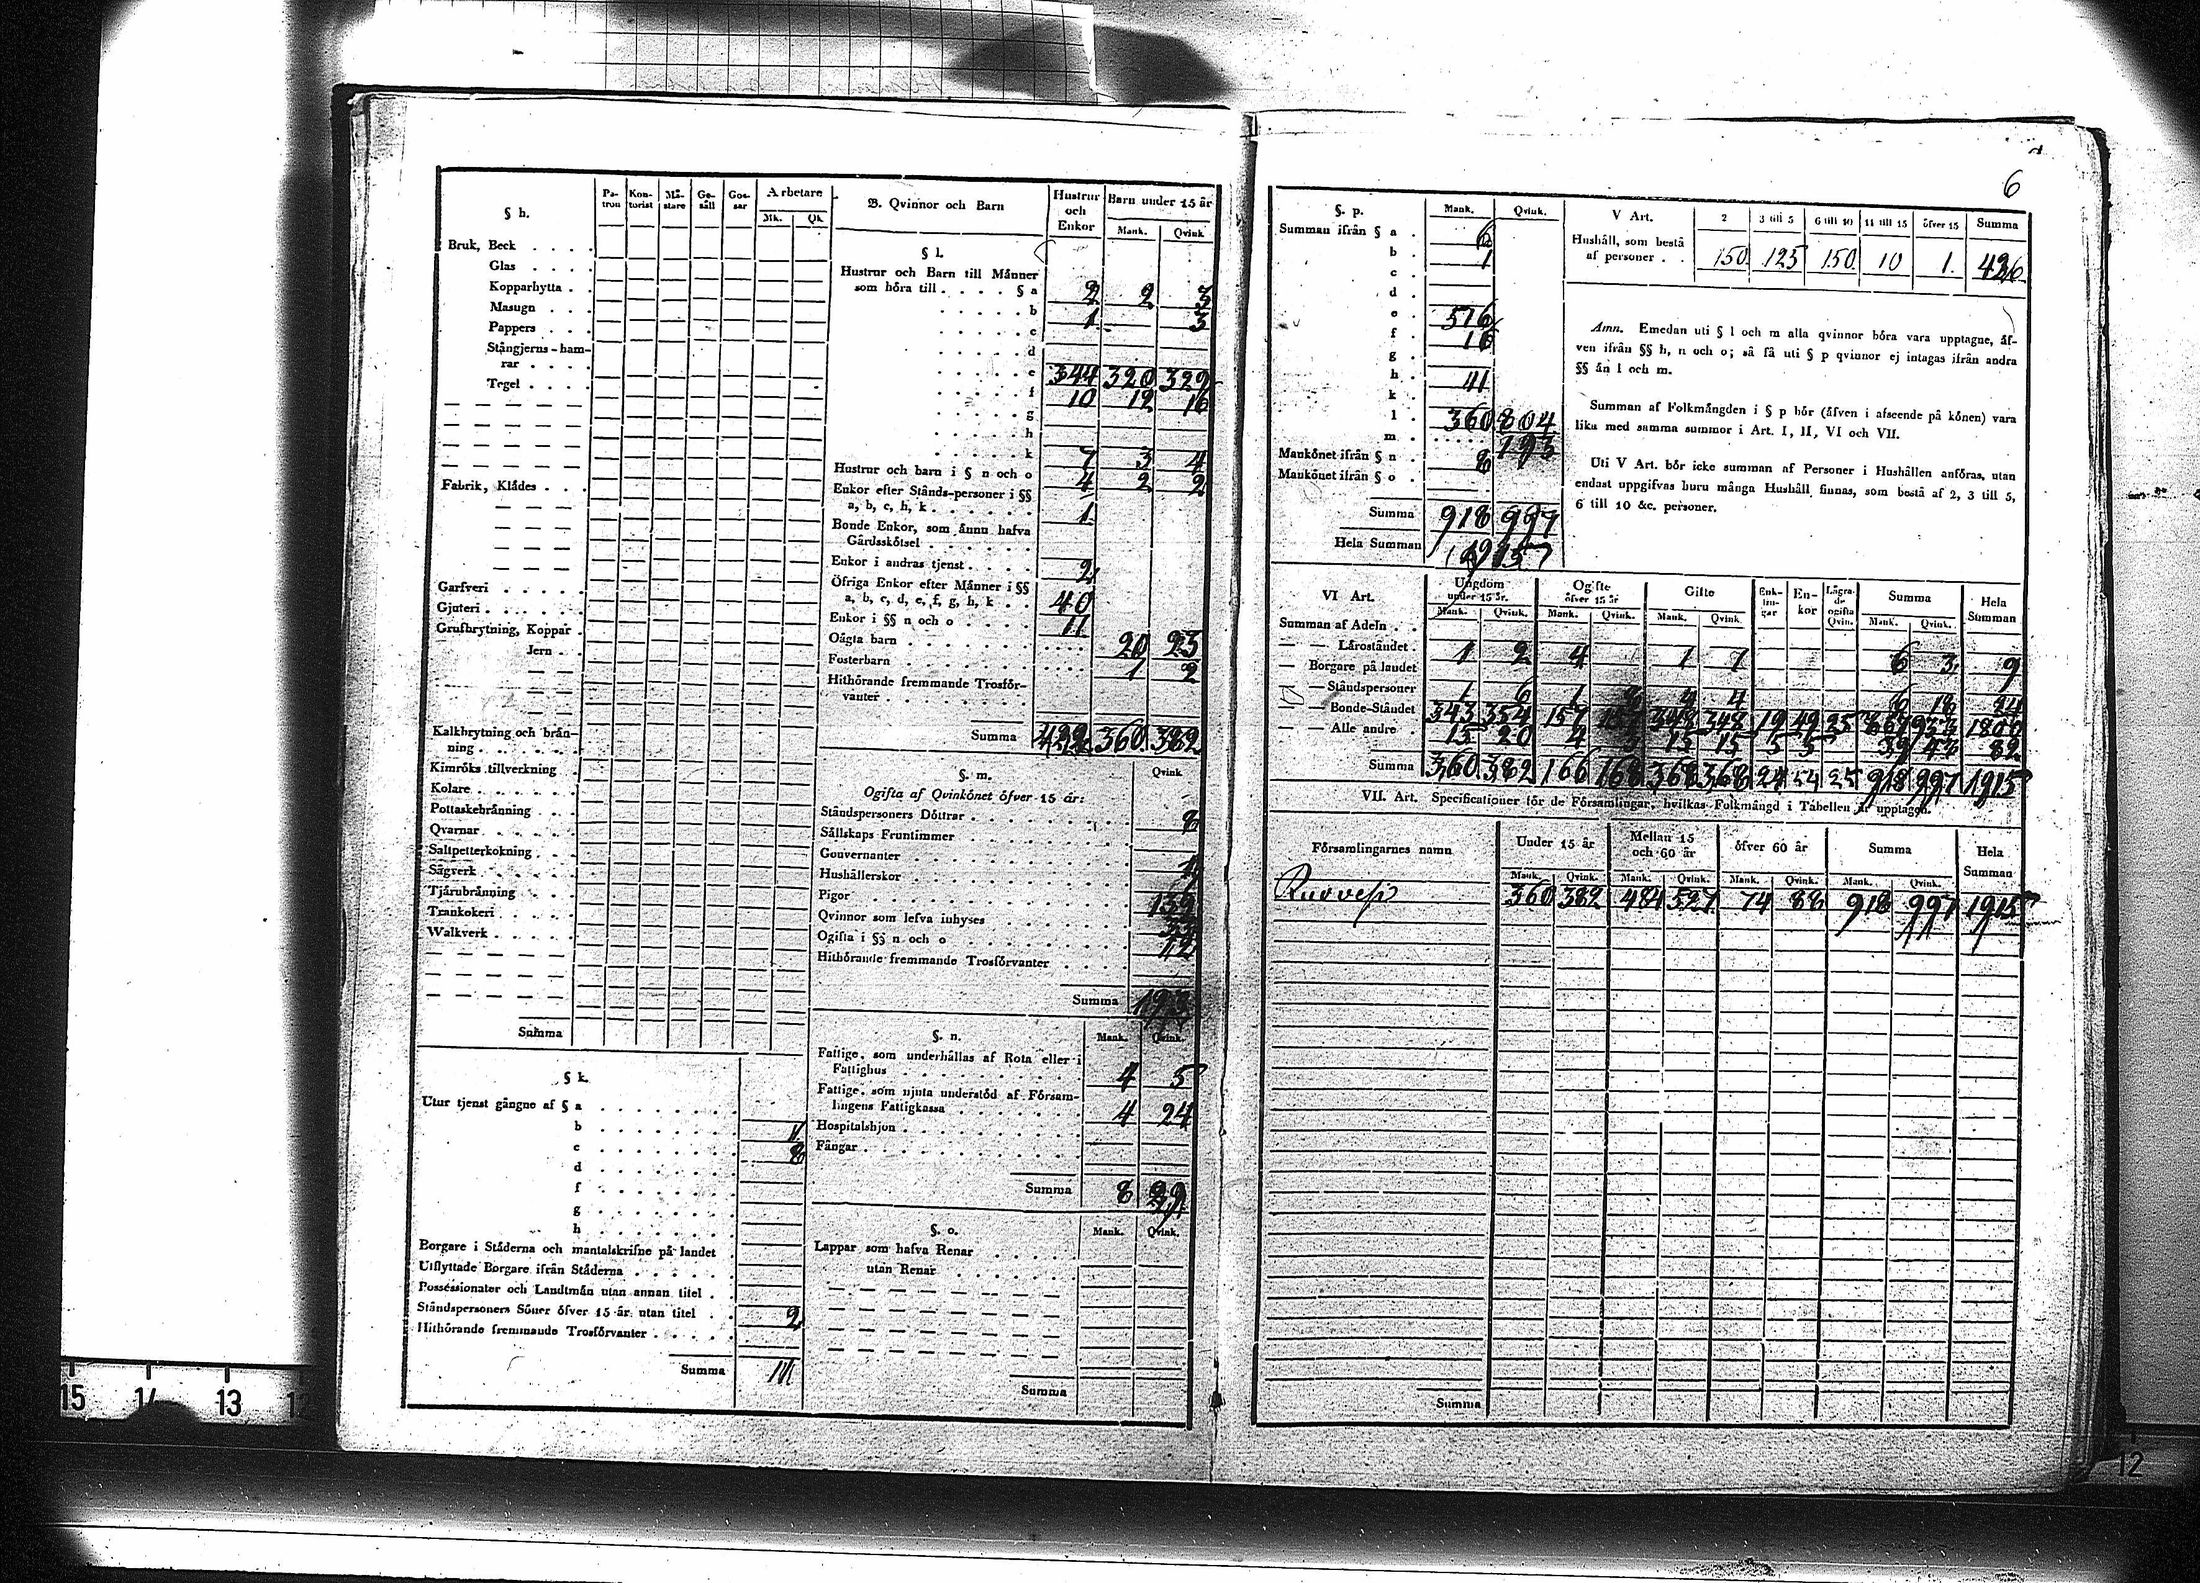 6
§ h.
Pa-tron Kon-torist Mä-stare Ge-säll Gos-sar Arbetare
Mk. Qk
Bruk, Beck
Glas
Kopparhytta
Masugn
Pappers
Stångjerns-ham-
rar
Tegel
Fabrik, Klädes
Garfveri
Gjuteri
Grufbrytning, Koppar
Jern
Kalkbrytning och brän-
ning
Kimröks tillverkning
Kolare
Pottaskebränning
Qvarnar
Saltpetterkokning
Sågverk
Tjärubränning
Trankokeri
Walkverk
Summa
§ k.
Utur tjenst gångne af § a
b 1
c 8
d
f
g
h
Borgare i Städerna och mantalskrifne på landet
Utflyttade Borgare ifrån Städerna
Possessionater och Landtmän utan annan titel
Ståndspersoners Söner öfver 15 år utan titel 2
Hithörande fremmande Trosförvanter
Summa 11
B. Qvinnor och Barn Hustrur och Enkor Barn under 15 år
Mank. Qvink
§ l.
Hustrur och Barn till Männer
som höra till § a 2 2 3
b 1 3
c
d
e 344 320 329
f 10 12 16
g
h
k 7 3 4
Hustrur och barn i § n och o 4 2 2
Enkor efter Stånds-personer i §§
a, b, c, h, k 1
Bonde Enkor, som ännu hafva
Gårdsskötsel
Enkor i andras tjenst 2
Öfriga Enkor efter Männer i §§
a, b, c, d, e, f, g, h, k 40
Enkor i §§ n och o 11
Oägta barn 20 23
Fosterbarn 1 2
Hithörande fremmande Trosför-
vanter
Summa 422 360 382
§. m. Qvink
Ogifta af Qvinkönet öfver 15 år:
Ståndspersoners Döttrar 8
Sällskaps Fruntimmer
Gouvernanter
Hushållerskor 1
Pigor 139
Qvinnor som lefva inhyses 33
Ogifta i §§ n och o 12
Hithörande fremmande Trosförvanter
Summa 193
§. n. Mank. Qvink.
Fattige, som underhållas af Rota eller i
Fattighus 4 5
Fattige, som njuta understöd af Försam-
lingens Fattigkassa 4 24
Hospitalshjon
Fångar
Summa 8 29
§. o. Mank. Qvink.
Lappar som hafva Renar
utan Renar
Summa
§. p. Mank. Qvink.
Summan ifrån § a 6
b 1
c
d
e 516
f 16
g
h
k 11
l 360 804
m 193
Mankönet ifrån § n 8
Mankönet ifrån § o
Summa 918 997
Hela Summan 1915
V Art. 2 3 till 5 6 till 10 11 till 15 öfver 15 Summa
Hushåll, som bestå
af personer 150 125 150 10 1 436
Anm. Emedan uti § l och m alla qvinnor böra vara upptagne, äf-
ven ifrån §§ h, n och o; så få uti § p qvinnor ej intagas ifrån andra
§§ än l och m.
Summan af Folkmängden i § p bör (äfven i afseende på könen) vara
lika med samma summor i Art. I, II, VI och VII.
Uti V Art. bör icke summan af Personer i Hushållen anföras, utan
endast uppgifvas huru många Hushåll finnas, som bestå af 2, 3 till 5,
6 till 10 &c. personer.
VI Art. Ungdom under 15 år. Ogifte öfver 15 år Gifte Enk-lin-gar En-kor Lägra-de ogifta Qvin. Summa Hela Summan
Mank. Qvink. Mank. Qvink. Mank. Qvink. Mank. Qvink.
Summan af Adeln
— — Läroståndet 1 2 4 1 1 6 3 9
— Borgare på landet
— Ståndspersoner 1 6 1 8 4 4 6 18 24
— Bonde-Ståndet 343 354 157 157 348 348 19 49 25 867 933 1800
— — Alle andre 15 20 4 3 15 15 5 5 39 43 82
Summa 360 382 166 168 368 368 24 54 25 918 997 1915
VII. Art. Specificationer för de Församlingar, hvilkas Folkmängd i Tabellen är upptagen.
Församlingarnes namn Under 15 år Mellan 15 och 60 år öfver 60 år Summa Hela Summan
Mank. Qvink. Mank. Qvink. Mank. Qvink. Mank. Qvink.
Ruovesi 360 382 484 527 74 88 918 997 1915
Summa
15 14 13 12
12